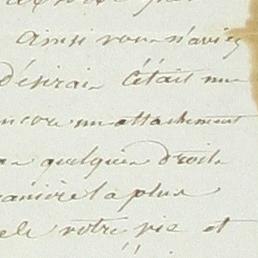 ainsi vous n'aviez
Désirai C'était un
encore un attachement
quelques droit
manière la plus
de votre vie et